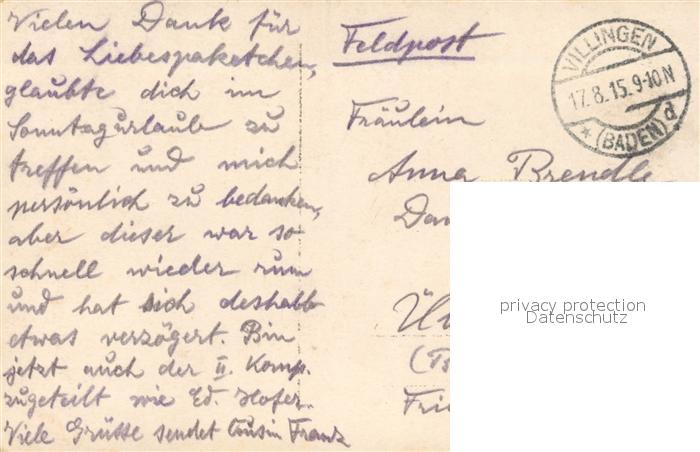 Vielen Dank für
das Liebespaketchen,
glaubte dich im
Sonntagurlaub zu
treffen und mich
persönlich zu bedanken,
aber dieser war so
schnell wieder rum
und hat sich deshalb
etwas verzögert. Bin
jetzt auch der II. Komp.
zugeteilt wie Ed. Hofer.
Viele Grüsse sendet Cousin Franz
Feldpost
VILLINGEN
17.8.15.9-10N
* (BADEN) d
Fräulein
Anna Brendle
privacy protection
Datenschutz